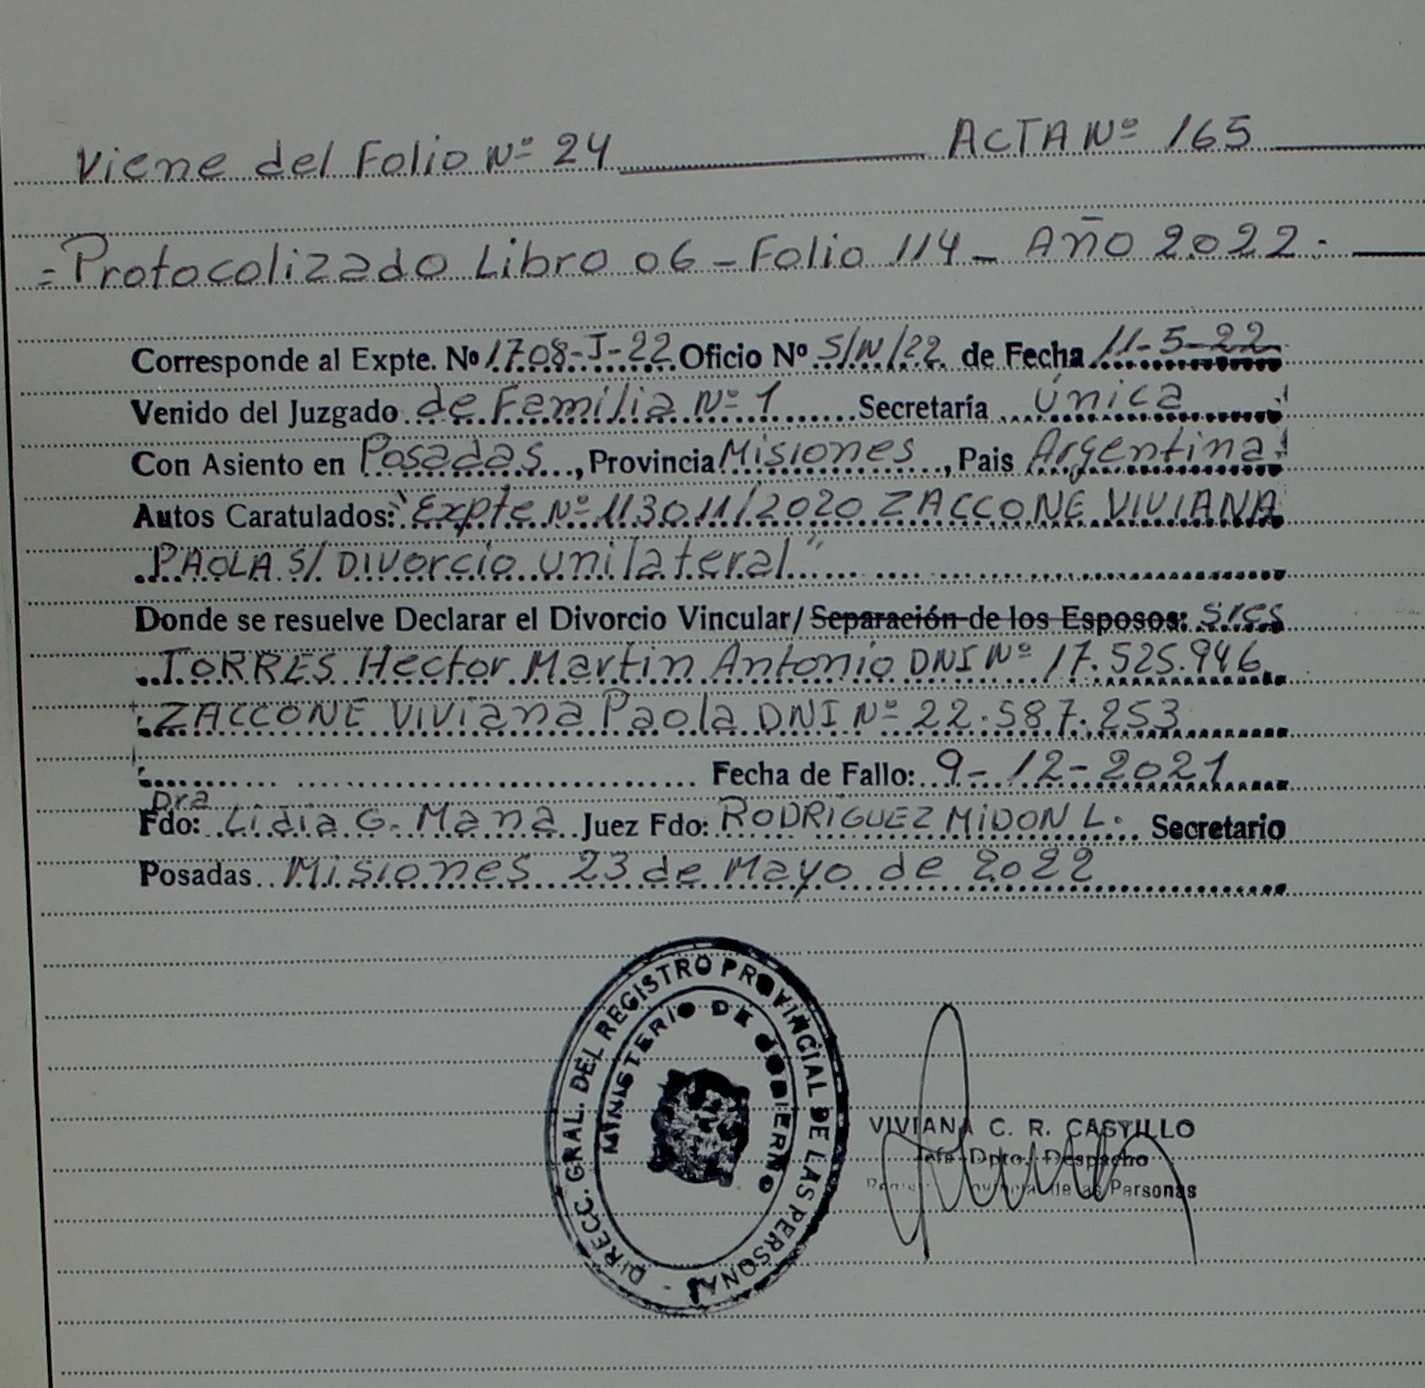 Viene del Folio Nº 24 ACTA Nº 165
=Protocolizado Libro 06 - Folio 114 - Año 2022:
Corresponde al Expte. Nº 1708-J-22 Oficio Nº S/N/22 de Fecha 11-5-22
Venido del Juzgado de Familia Nº 1 Secretaría única
Con Asiento en Posadas, Provincia Misiones, Pais Argentina
Autos Caratulados: "Expte Nº 113011/2020 ZACCONE VIVIANA
PAOLA S/ Divorcio unilateral"
Donde se resuelve Declarar el Divorcio Vincular/ Separación de los Esposos:
TORRES Hector Martin Antonio DNI Nº 17.525.946
ZACCONE Viviana Paola DNI Nº 22.587.253
Fecha de Fallo: 9-12-2021
Dra
Fdo: Lidia G. Mana Juez Fdo: RODRÍGUEZ MIDON L. Secretario
Posadas Misiones 23 de Mayo de 2022
DIRECC. GRAL. DEL REGISTRO PROVINCIAL DE LAS PERSONAS
MINISTERIO DE GOBIERNO
VIVIANA C. R. CASTILLO
Jefe Dpto. Despacho
de las Personas